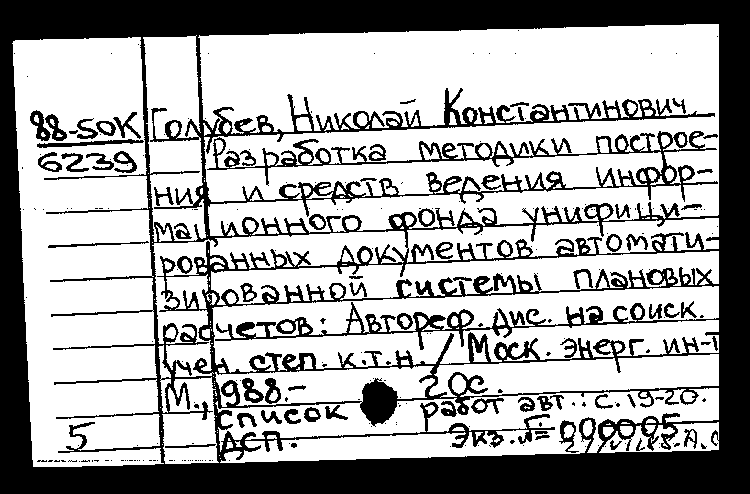 88-50К Голубев, Николай Константинович.
6239 Разработка методики построе-
ния и средств ведения инфор-
мационного фонда унифици-
рованных документов автомати-
зированной системы плановых
расчетов: Автореф. дис. на соиск.
учен. степ. к.т.н. / Моск. энерг. ин-т
М., 1988.- 20с.
список работ авт.: с. 19-20.
5 ДСП. Экз.№ 000005